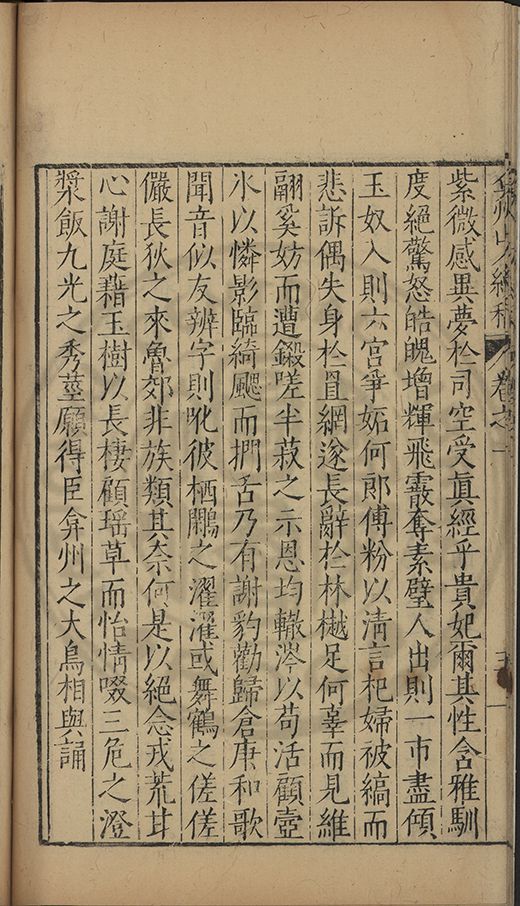 弇州山人續稿 卷之一
紫微感異夢於司空受真經乎貴妃爾其性含雅馴
度絕驚怒皓魄增輝飛霰奪素璧人出則一市盡傾
玉奴入則六宮爭妬何郎傅粉以清言杞婦被縞而
悲訴偶失身於罝網遂長辭於林樾足何辜而見維
翮奚妨而遭鎩嗟半菽之示恩均轍涔以苟活顧壺
氷以憐影臨綺飔而捫舌乃有謝豹勸歸倉庚和歌
聞音似友辨字則吪彼栖鷴之濯濯或舞鶴之傞傞
儼長狄之來魯郊非族類其奈何是以絕念戎荒甘
心謝庭藉玉樹以長棲顧瑶草而怡情啜三危之澄
漿飯九光之秀莖願得臣弇州之大鳥相與誦